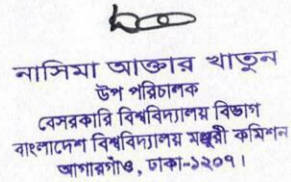 নাসিমা আক্তার খাতুন
উপ পরিচালক
বেসরকারি বিশ্ববিদ্যালয় বিভাগ
বাংলাদেশ বিশ্ববিদ্যালয় মঞ্জুরী কমিশন
আগারগাঁও, ঢাকা-১২০৭।